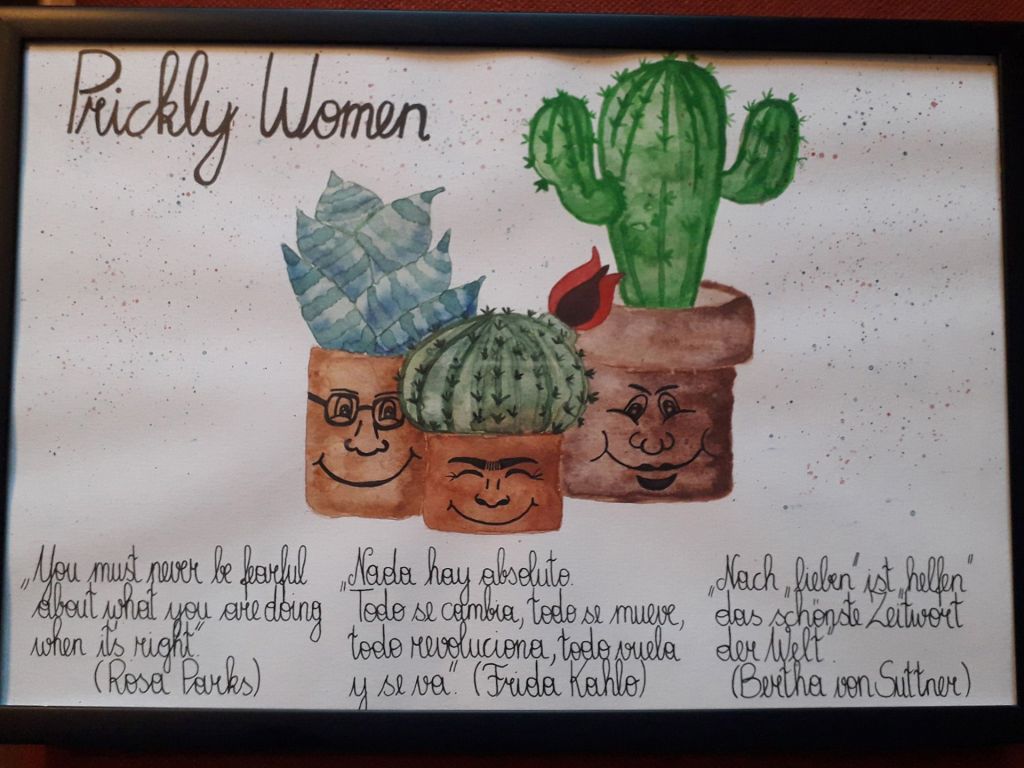 Prickly Women
„You must never be fearful
about what you are doing
when it's right“
(Rosa Parks)
„Nada hay absoluto.
Todo se cambia, todo se mueve,
todo revoluciona, todo vuela
y se va“. (Frida Kahlo)
„Nach „lieben“ ist „helfen“
das schönste Zeitwort
der Welt“.
(Bertha von Suttner)